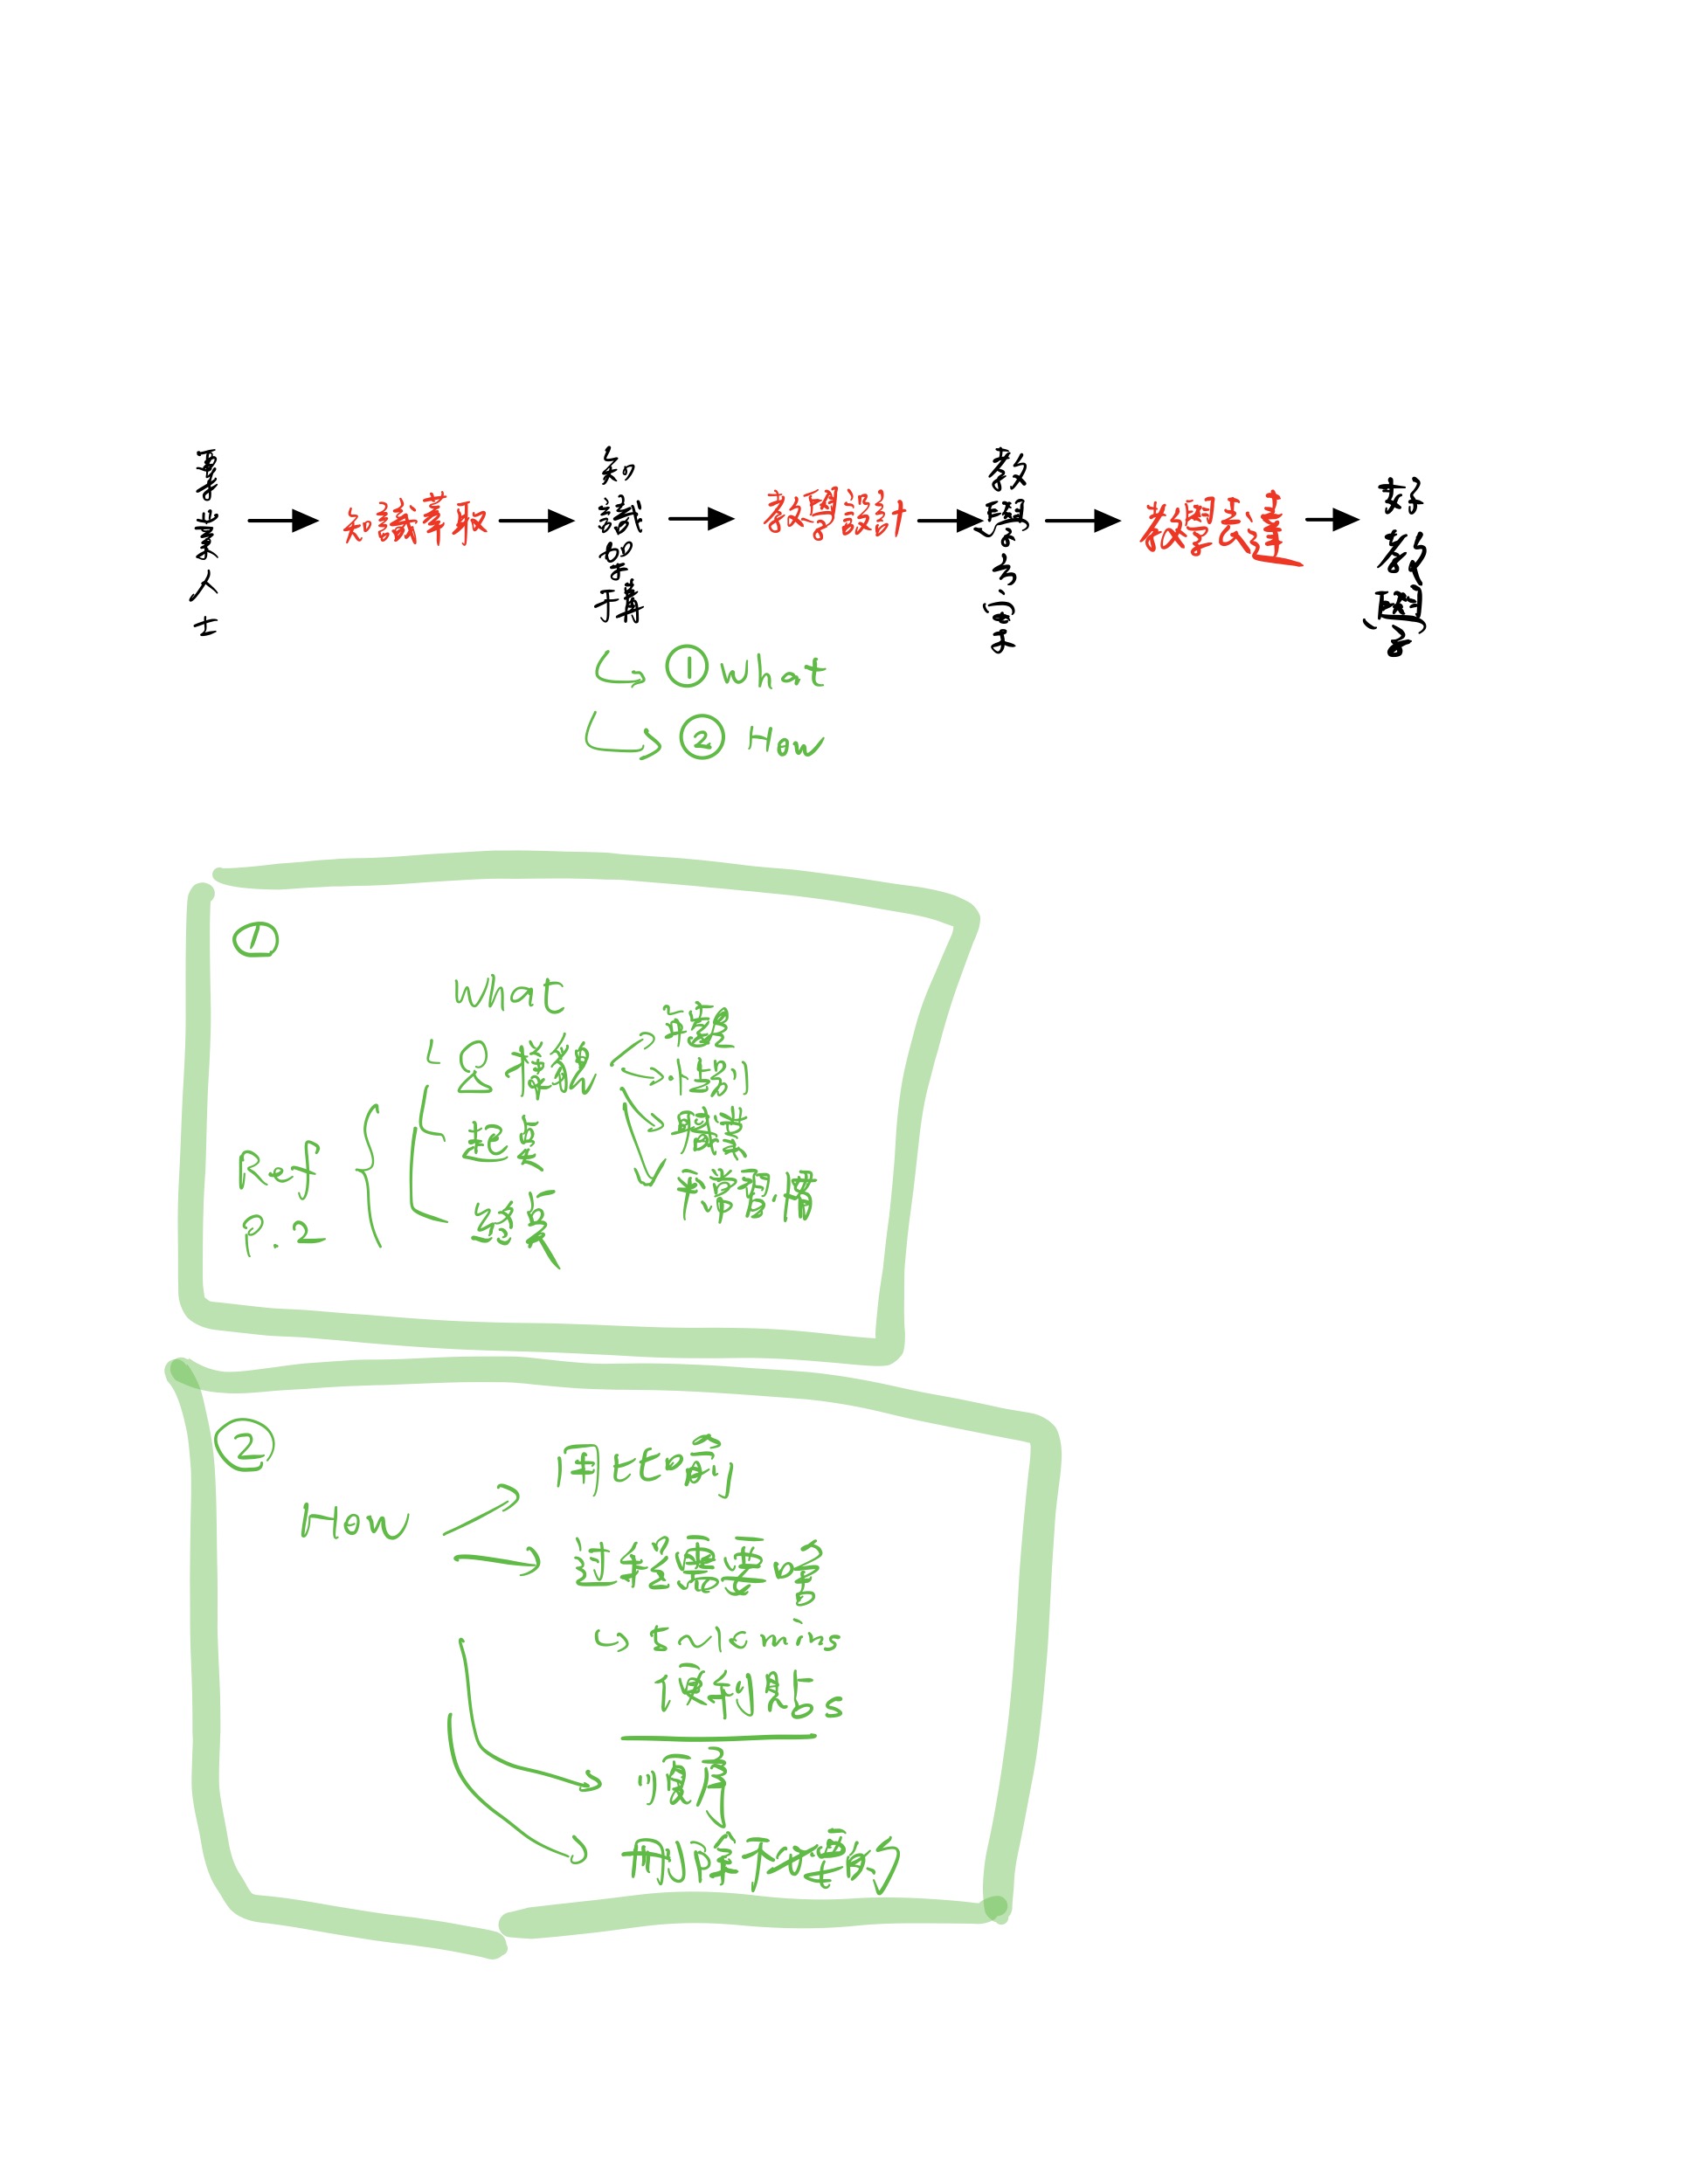 專業人士
知識萃取
知識架構
教學設計
教學方案
教學表達
好教學
① what
② How
①
what
樣貌
年齡
性別
職業
平常習慣
起點
終點
Ref
P. 2
②
How
用比喻
过程需要啥
5~10 mins
便利貼s
順序
刪除不必要的